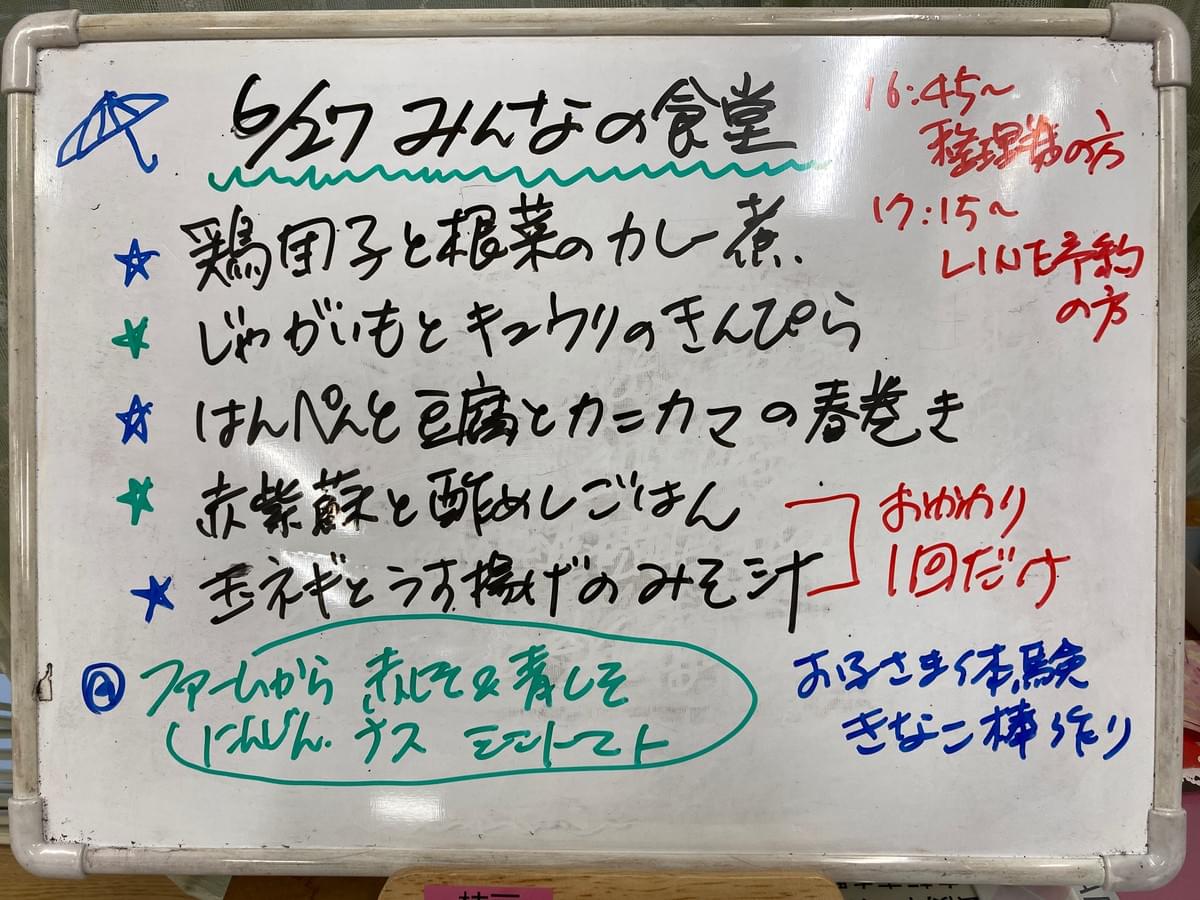 6/27 みんなの食堂
16:45〜
整理券の方
17:15〜
LINE予約
の方
鶏団子と根菜のカレー煮
じゃがいもとキュウリのきんぴら
はんぺんと豆腐とカニカマの春巻き
赤紫蘇と酢めしごはん
玉ネギとうす揚げのみそ汁
おかわり
1回だけ
ファームから 赤しそ&青しそ
にんじん.ナス ミニトマト
お子さま体験
きなこ棒作り